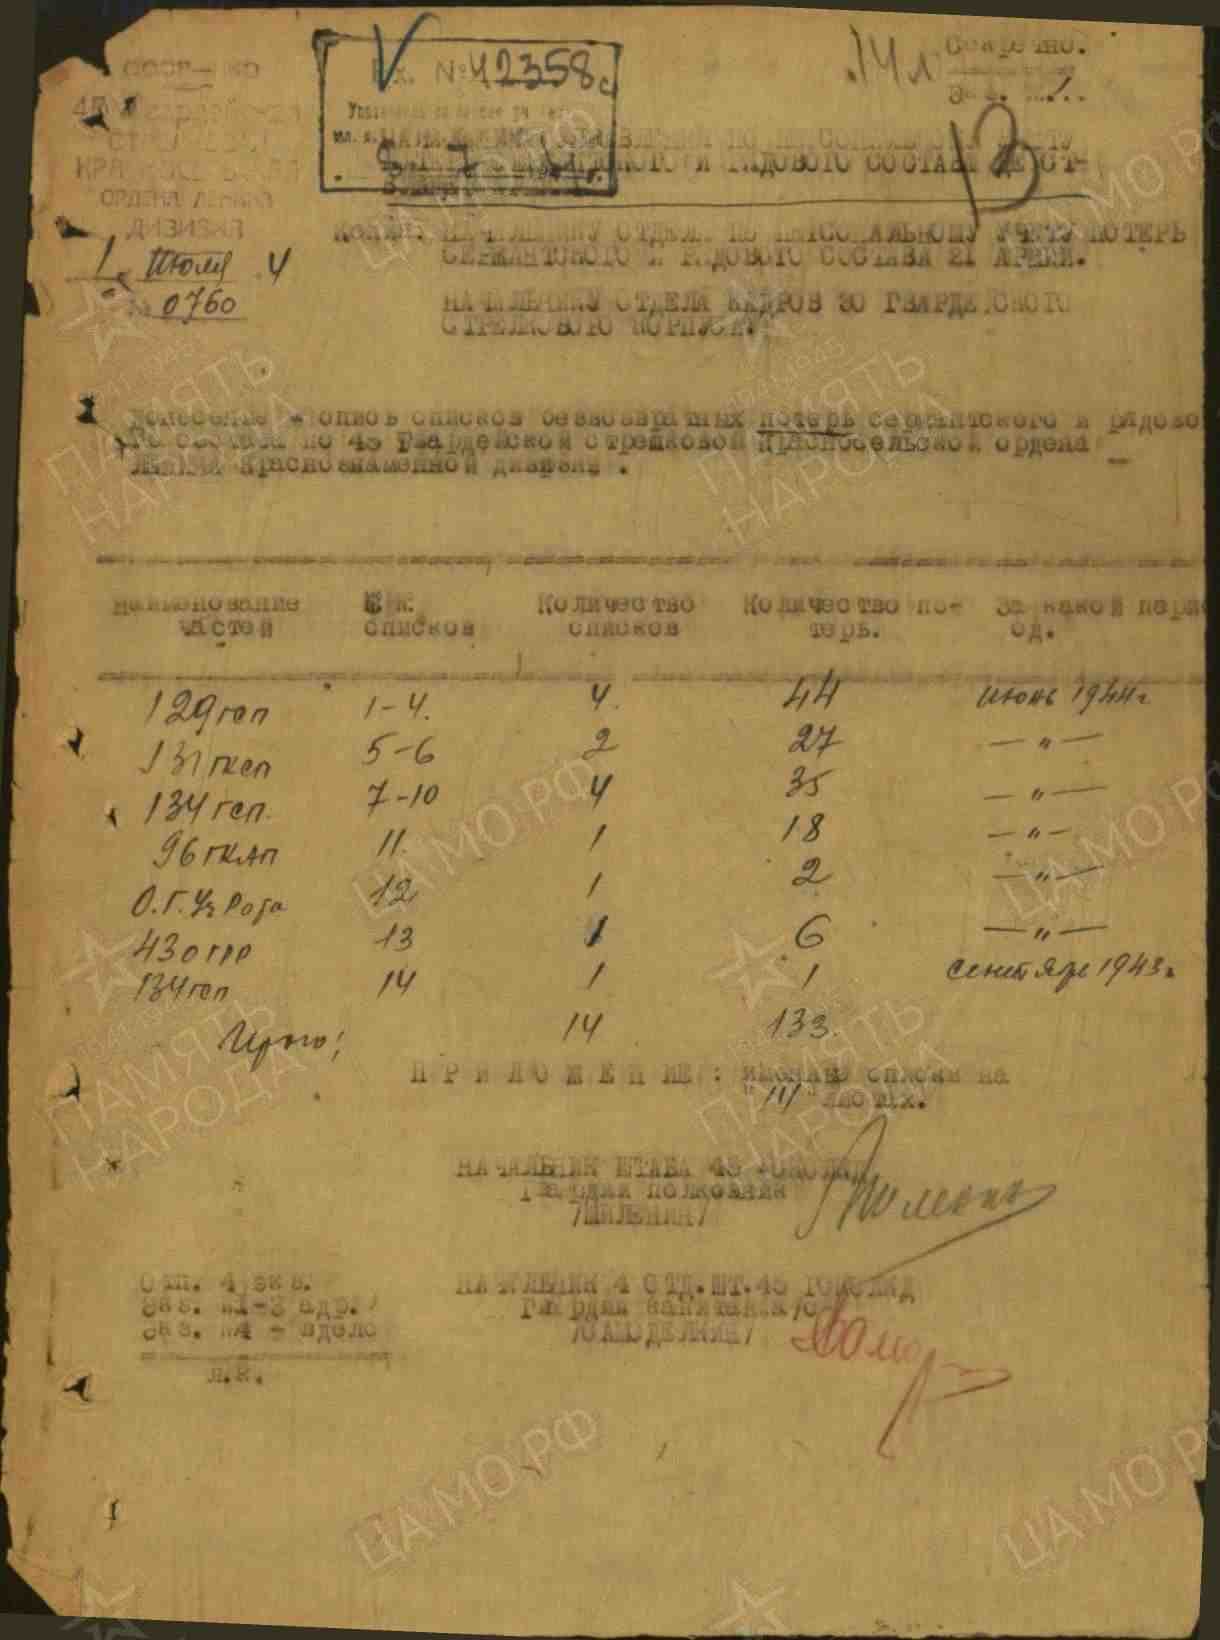 СССР—НКО
45 Гвардейская
СТРЕЛКОВАЯ
КРАСНОСЕЛЬСКАЯ
ОРДЕНА ЛЕНИНА
ДИВИЗИЯ
1 Июля 4
№ 0760
Вх. № 42358с
14 л
Секретно.
Экз. № 1.
13
НАЧАЛЬНИКУ УПРАВЛЕНИЯ ПО ПЕРСОНАЛЬНОМУ УЧЕТУ
СЕРЖАНТСКОГО И РЯДОВОГО СОСТАВА ДЕЙСТ-
Копия: НАЧАЛЬНИКУ ОТДЕЛА ПО ПЕРСОНАЛЬНОМУ УЧЕТУ ПОТЕРЬ
СЕРЖАНТСКОГО И РЯДОВОГО СОСТАВА 21 АРМИИ.
НАЧАЛЬНИКУ ОТДЕЛА КАДРОВ 30 ГВАРДЕЙСКОГО
СТРЕЛКОВОГО КОРПУСА.
Донесение и опись списков безвозвратных потерь сержантского и рядово
го состава по 45 Гвардейской стрелковой Красносельской ордена
Ленина Краснознаменной дивизии.
Наименование частей
№№ списков
Количество списков
Количество по- терь.
За какой пери од.
129 гсп 1-4. 4. 44 июнь 1944 г
131 гксп 5-6 2 27 — " —
134 гсп. 7-10 4 35 — " —
96 гкап 11. 1 18 — " —
О.Г.Уч Рота 12 1 2 — " —
43 огрр 13 1 6 — " —
134 гсп 14 1 1 сентябре 1943 г.
Итого: 14 133.
ПРИЛОЖЕНИЕ: именные списки на
"14" листах.
НАЧАЛЬНИК ШТАБА 45
гвардии полковник
/ШИЛЕНИН/
НАЧАЛЬНИК 4 ОТД.ШТ.45
гвардии капитан а/с
/САМОДЕЛКИН/
Отп. 4 экз.
экз. №1-3 адр.
экз. №4 - в дело
л.к.
ЦАМО.РФ
ПАМЯТЬ
НАРОДА